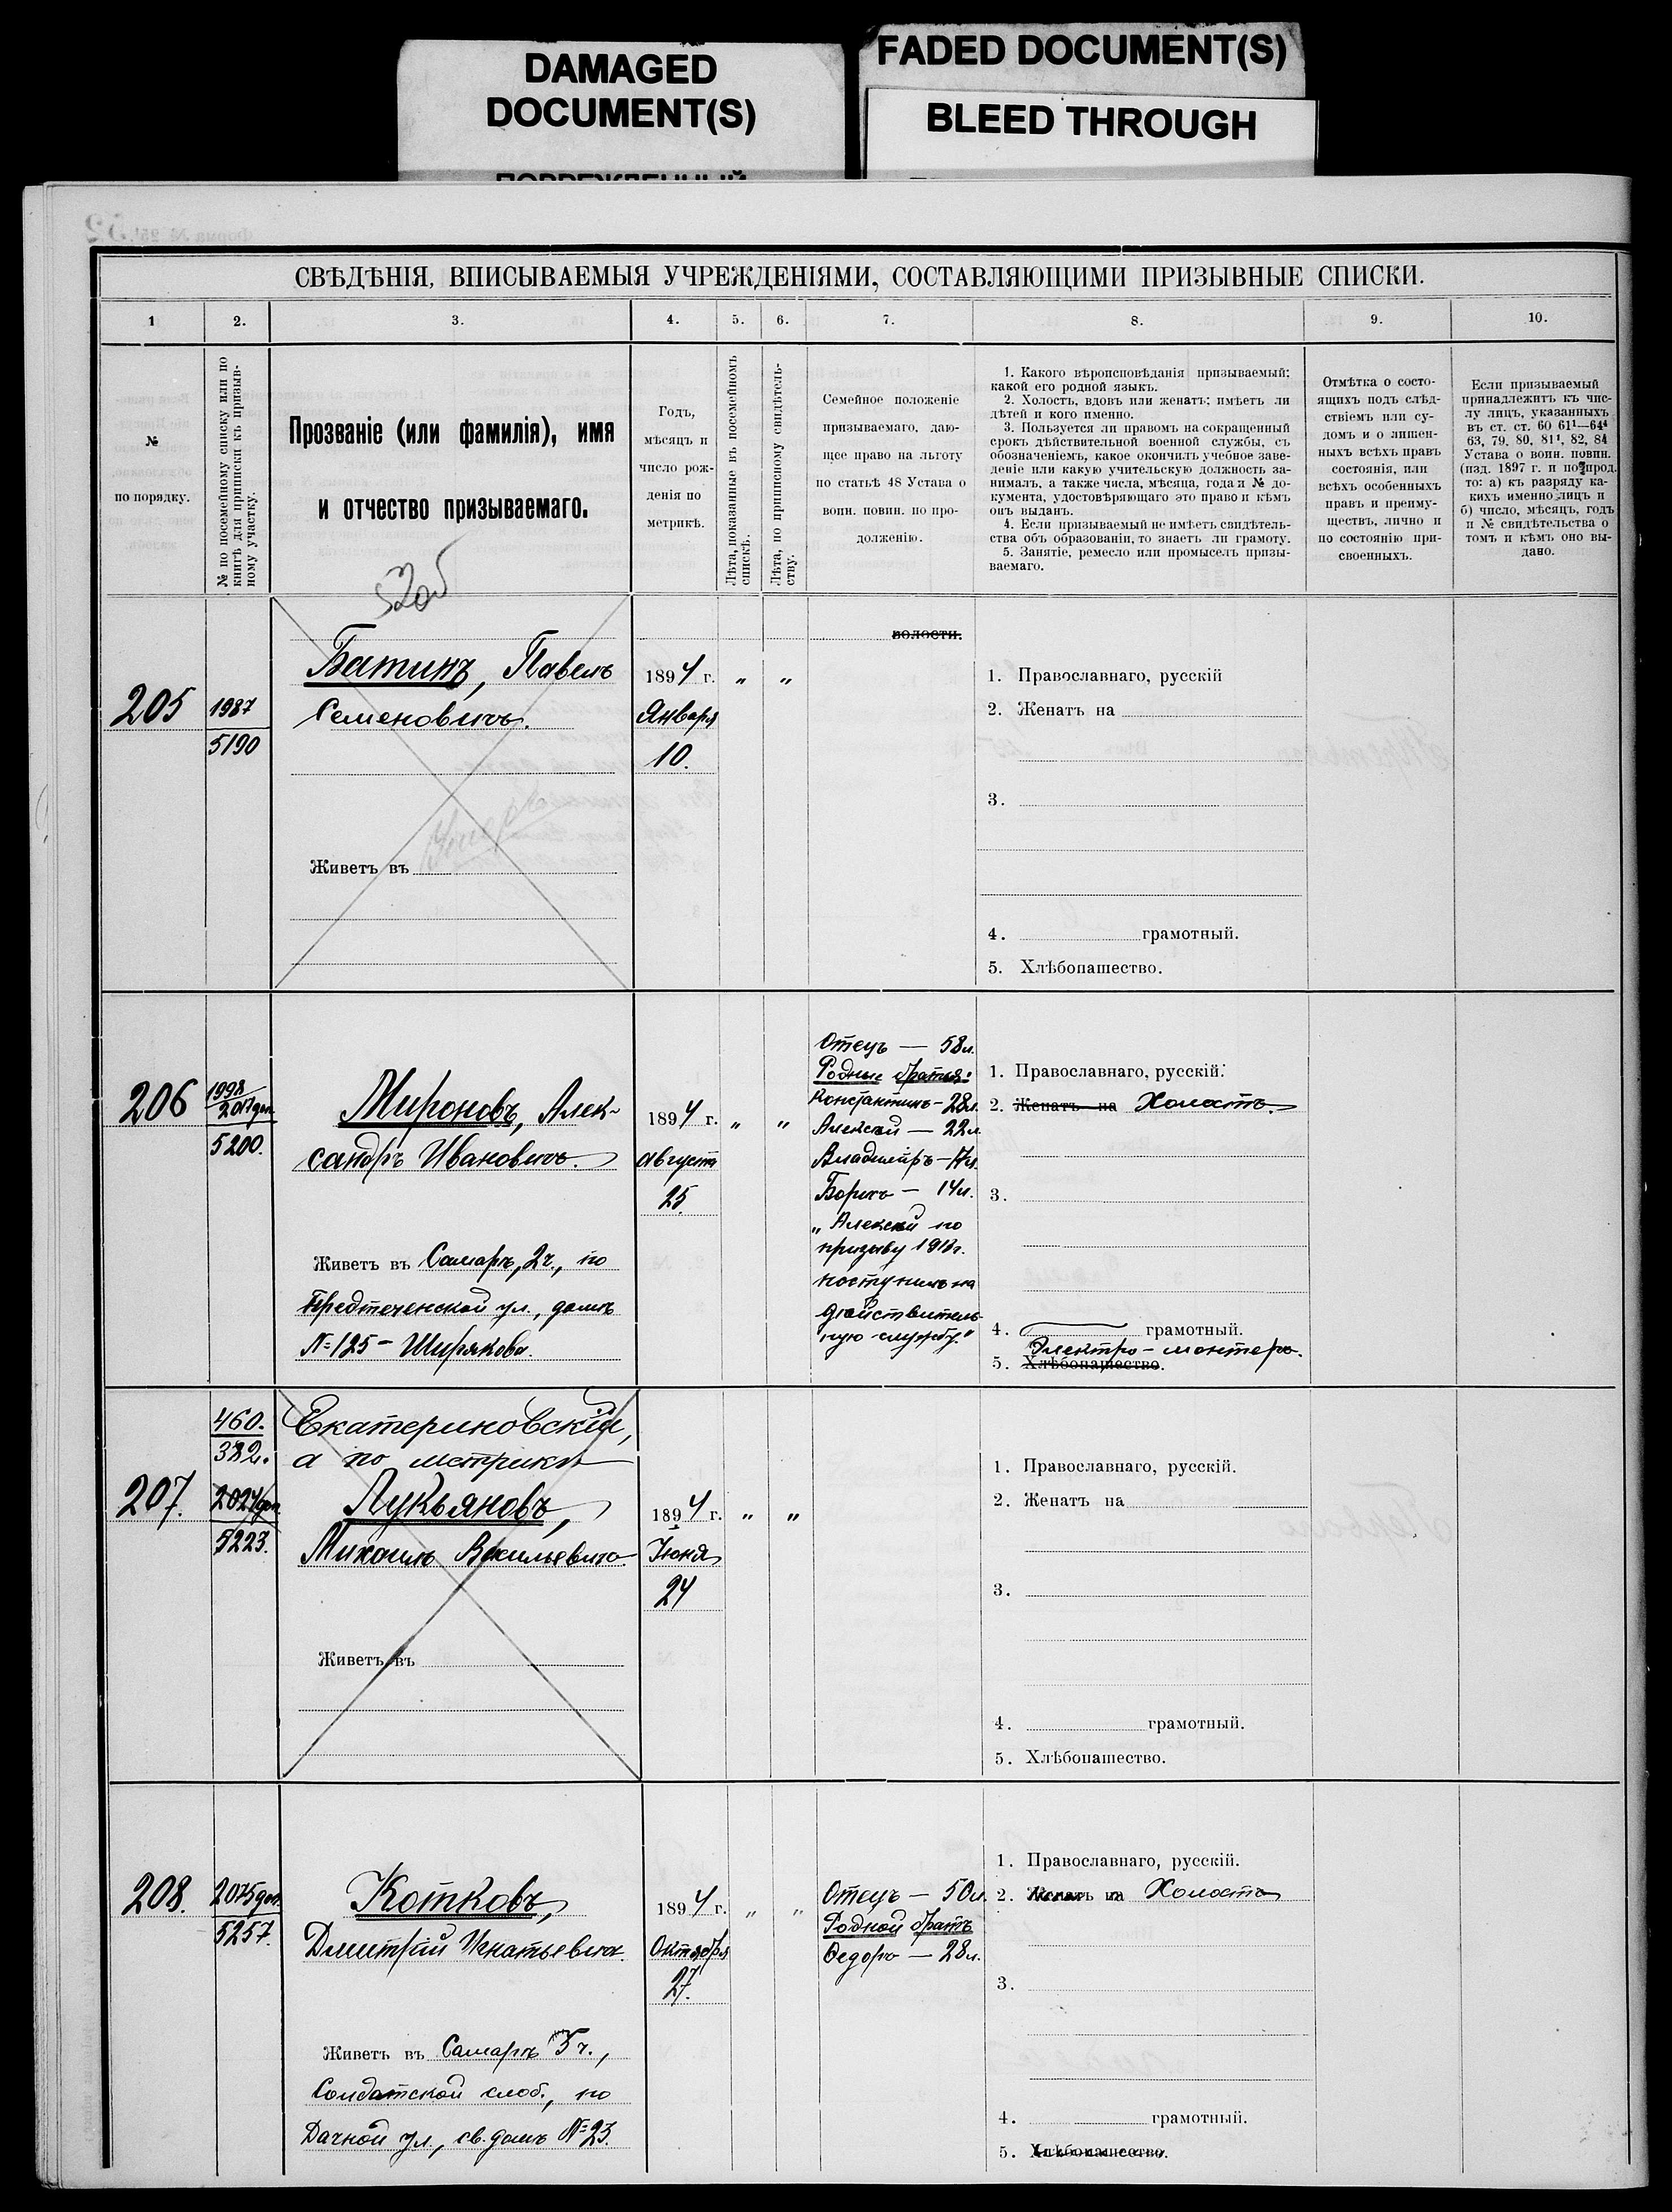 DAMAGED
DOCUMENT(S)
FADED DOCUMENT(S)
BLEED THROUGH
СВѢДѢНІЯ, ВПИСЫВАЕМЫЯ УЧРЕЖДЕНІЯМИ, СОСТАВЛЯЮЩИМИ ПРИЗЫВНЫЕ СПИСКИ.
1 2. 3. 4. 5. 6. 7. 8. 9. 10.
№
по порядку.
№ по посемейному списку или по
книгѣ для приписки къ призыв-
ному участку.
Прозваніе (или фамилія), имя
и отчество призываемаго.
Годъ,
мѣсяцъ и
число рож-
денія по
метрикѣ.
Лѣта, показанные въ посемейномъ
спискѣ.
Лѣта, по приписному свидѣтель-
ству.
Семейное положеніе
призываемаго, даю-
щее право на льготу
по статьѣ 48 Устава о
воин. повин. по про-
долженію.
1. Какого вѣроисповѣданія призываемый;
какой его родной языкъ.
2. Холостъ, вдовъ или женатъ; имѣетъ ли
дѣтей и кого именно.
3. Пользуется ли правомъ на сокращенный
срокъ дѣйствительной военной службы, съ
обозначеніемъ, какое окончилъ учебное заве-
деніе или какую учительскую должность за-
нималъ, а также числа, мѣсяца, года и № до-
кумента, удостовѣряющаго это право и кѣмъ
онъ выданъ.
4. Если призываемый не имѣетъ свидѣтель-
ства объ образованіи, то знаетъ ли грамоту.
5. Занятіе, ремесло или промыселъ призы-
ваемаго.
Отмѣтка о состо-
ящихъ подъ слѣд-
ствіемъ или су-
домъ и о лишен-
ныхъ всѣхъ правъ
состоянія, или
всѣхъ особенныхъ
правъ и преиму-
ществъ, лично и
по состоянію при-
своенныхъ.
Если призываемый
принадлежитъ къ чис-
лу лицъ, указанныхъ
въ ст. ст. 60 61¹—64⁴
63, 79, 80, 81¹, 82, 84
Устава о воин. повин.
(изд. 1897 г. и по прод.
то: а) къ разряду ка-
кихъ именно лицъ и
б) число, мѣсяцъ, годъ
и № свидѣтельства о
томъ и кѣмъ оно вы-
дано.
52об
волости.
205
1987
5190
Батинъ, Павелъ
Семеновичъ.
Живетъ въ
1894 г. " "
Января
10.
1. Православнаго, русскій
2. Женатъ на
3.
4. грамотный.
5. Хлѣбопашество.
206
1998
2017 доп.
5200.
Мироновъ, Алек-
сандръ Ивановичъ.
Живетъ въ Самарѣ, 2 ч., по
Предтеченской ул., домъ
№ 125 - Ширякова.
1894 г. " "
Августа
25.
Отецъ — 58 л.
Родные братья:
Константинъ - 28 л.
Алексѣй — 22 л.
Владиміръ - 17 л.
Борисъ — 14 л.
„Алексѣй по
призыву 1913 г.
поступилъ на
дѣйствитель-
ную службу."
1. Православнаго, русскій.
2. Женатъ на Холостъ.
3.
4. грамотный.
Электро-монтеръ.
5. Хлѣбопашество.
207.
460.
382.
2024 доп.
5223.
Екатериновскій,
а по метрикѣ
Лукьяновъ,
Михаилъ Васильевичъ.
Живетъ въ
1894 г. " "
Іюня
24
1. Православнаго, русскій.
2. Женатъ на
3.
4. грамотный.
5. Хлѣбопашество.
208.
2075 доп.
5257.
Котковъ,
Дмитрій Игнатьевичъ.
Живетъ въ Самарѣ 5 ч.,
Солдатской слоб., по
Дачной ул., св. домъ № 23.
1894 г. " "
Октября
27.
Отецъ — 50 л.
Родной братъ
Ѳедоръ — 28 л.
1. Православнаго, русскій.
2. Женатъ на Холостъ
3.
4. грамотный.
5. Хлѣбопашество.